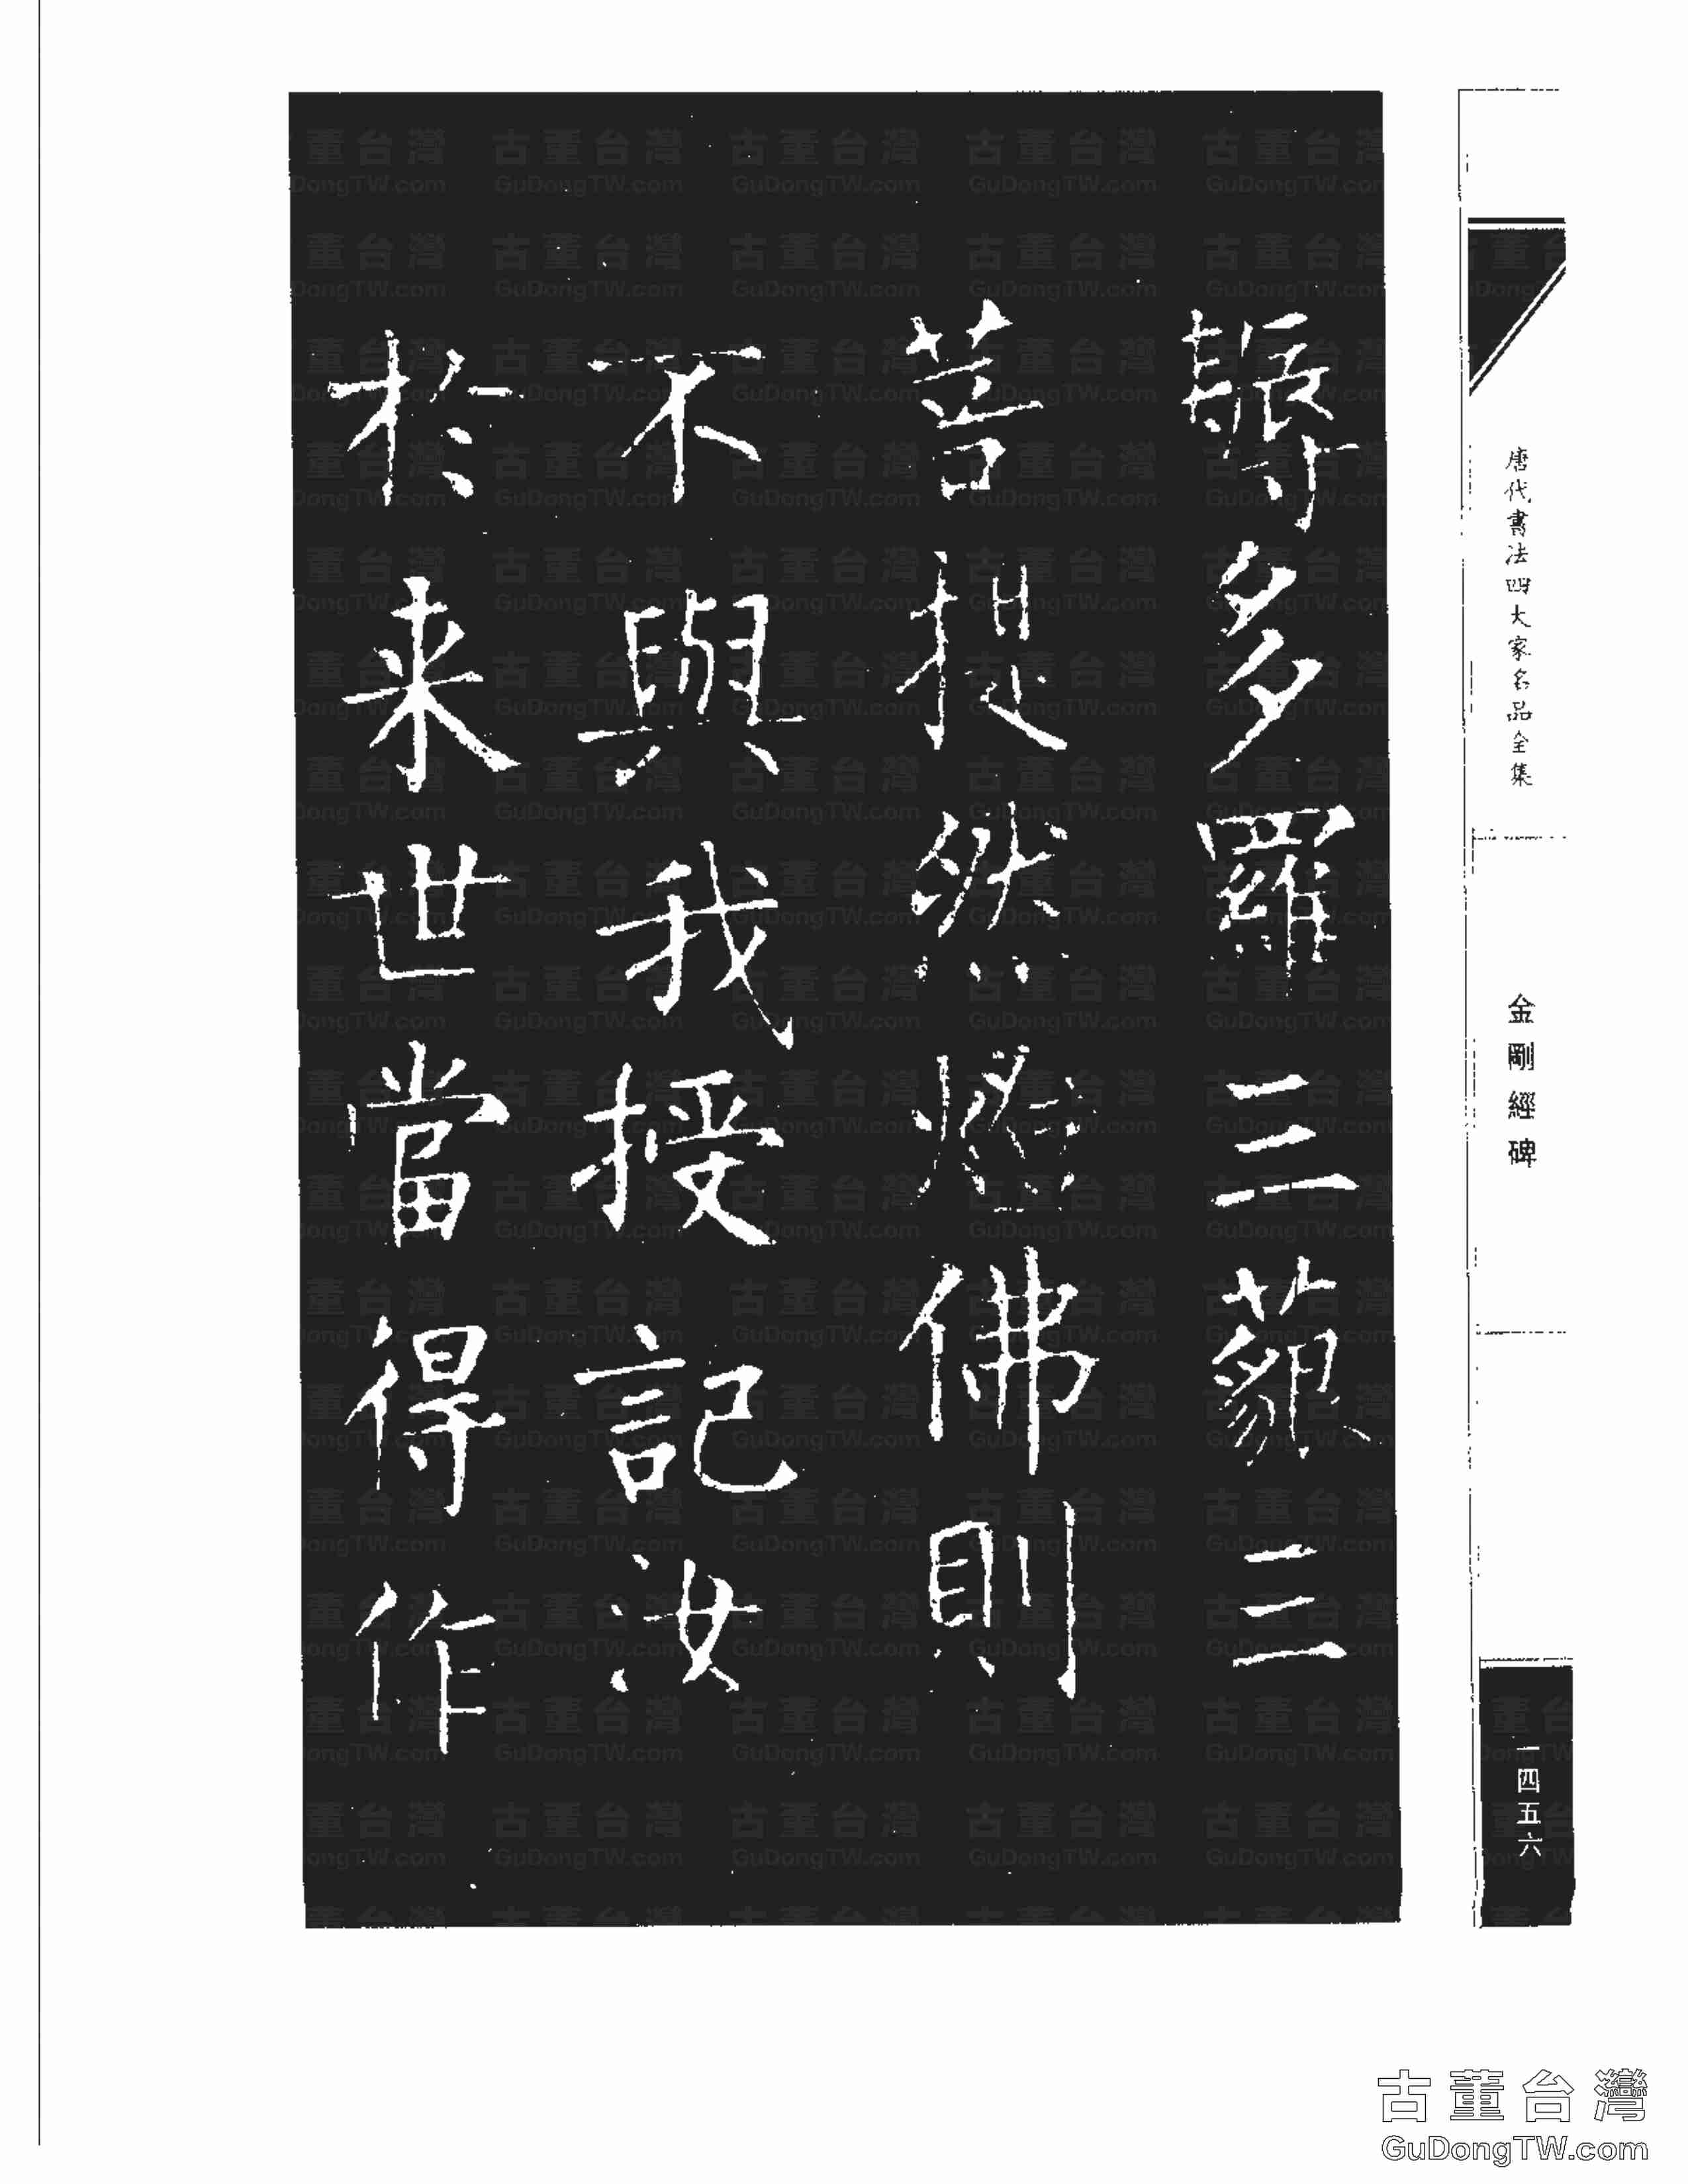 唐代書法四大家名品全集
金剛經碑
一四五六
耨多羅三藐三
菩提然燈佛則
不與我授記汝
於来世當得作
古董台灣
GuDongTW.com